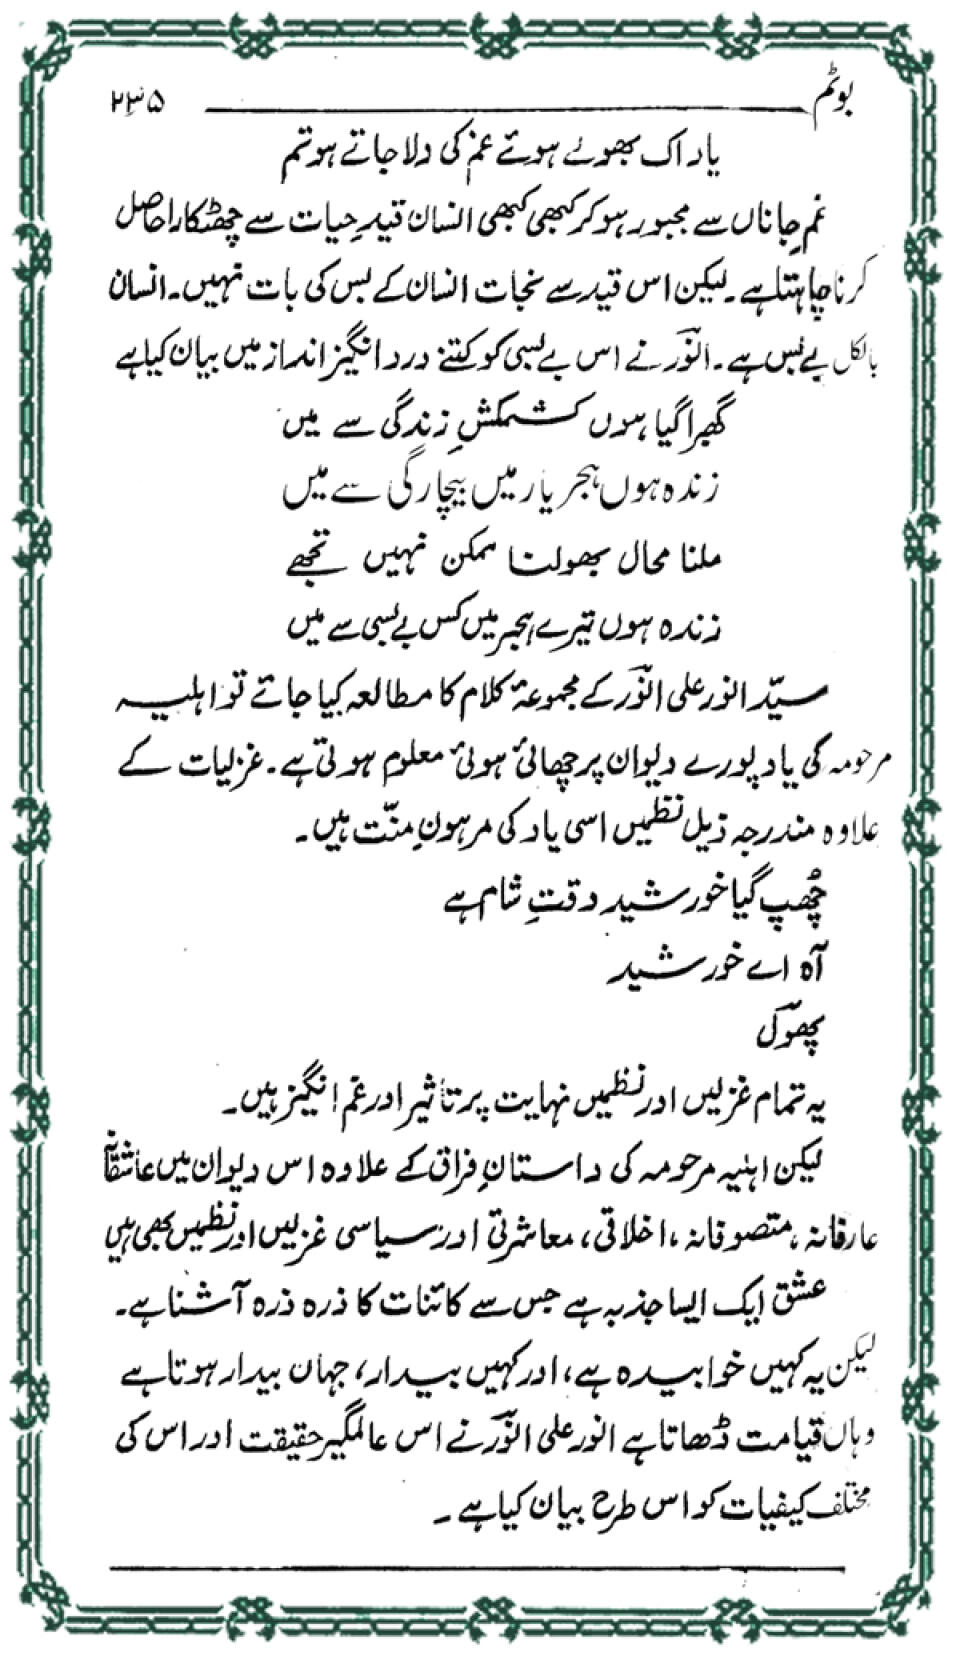 بوٹم ۲۳۵
یاد اک بھولے ہوئے غم کی دلا جاتے ہو تم
غمِ جاناں سے مجبور ہو کر کبھی کبھی انسان قیدِ حیات سے چھٹکارا حاصل
کرنا چاہتا ہے۔ لیکن اس قید سے نجات انسان کے بس کی بات نہیں۔ انسان
بالکل بے بس ہے۔ انورؔ نے اس بے بسی کو کتنے درد انگیز انداز میں بیان کیا ہے
گھبرا گیا ہوں کشمکشِ زندگی سے میں
زندہ ہوں ہجر یار میں بیچارگی سے میں
ملنا محال بھولنا ممکن نہیں تجھے
زندہ ہوں تیرے ہجر میں کس بے بسی سے میں
سیّد انور علی انورؔ کے مجموعۂ کلام کا مطالعہ کیا جائے تو اہلیہ
مرحومہ کی یاد پورے دیوان پر چھائی ہوئی معلوم ہوتی ہے۔ غزلیات کے
علاوہ مندرجہ ذیل نظمیں اسی یاد کی مرہونِ منّت ہیں۔
چُھپ گیا خورشید وقتِ شام ہے
آہ اے خورشید
پھولؔ
یہ تمام غزلیں اور نظمیں نہایت پر تاثیر اور غم انگیز ہیں۔
لیکن اہلیہ مرحومہ کی داستانِ فراق کے علاوہ اس دیوان میں عاشقانہ
عارفانہ، متصوفانہ، اخلاقی، معاشرتی اور سیاسی غزلیں اور نظمیں بھی ہیں
عشق ایک ایسا جذبہ ہے جس سے کائنات کا ذرہ ذرہ آشنا ہے۔
لیکن یہ کہیں خوابیدہ ہے، اور کہیں بیدار، جہان بیدار ہوتا ہے
وہاں قیامت ڈھاتا ہے انور علی انورؔ نے اس عالمگیر حقیقت اور اس کی
مختلف کیفیات کو اس طرح بیان کیا ہے۔